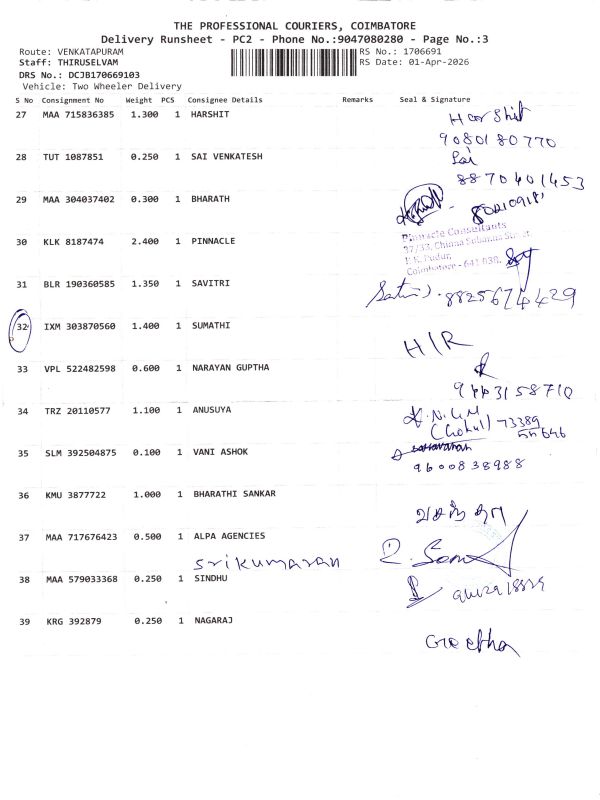 THE PROFESSIONAL COURIERS, COIMBATORE
Delivery Runsheet - PC2 - Phone No.:9047080280 - Page No.:3
Route: VENKATAPURAM
RS No.: 1706691
Staff: THIRUSELVAM
RS Date: 01-Apr-2026
DRS No.: DCJB170669103
Vehicle: Two Wheeler Delivery
S No Consignment No Weight PCS Consignee Details Remarks Seal & Signature
27 MAA 715836385 1.300 1 HARSHIT
Harshit
9080180770
28 TUT 1087851 0.250 1 SAI VENKATESH
Sai
8870401453
29 MAA 304037402 0.300 1 BHARATH
30 KLK 8187474 2.400 1 PINNACLE
Pinnacle Consultants
37/33, Chinna Subanna Street
P.K. Pudur,
Coimbatore - 641 038.
31 BLR 190360585 1.350 1 SAVITRI
8825674429
32 IXM 303870560 1.400 1 SUMATHI
H/R
33 VPL 522482598 0.600 1 NARAYAN GUPTHA
34 TRZ 20110577 1.100 1 ANUSUYA
(Gokul) 73389
55646
35 SLM 392504875 0.100 1 VANI ASHOK
9600838988
36 KMU 3877722 1.000 1 BHARATHI SANKAR
37 MAA 717676423 0.500 1 ALPA AGENCIES
Srikumaran
38 MAA 579033368 0.250 1 SINDHU
39 KRG 392879 0.250 1 NAGARAJ
Geetha